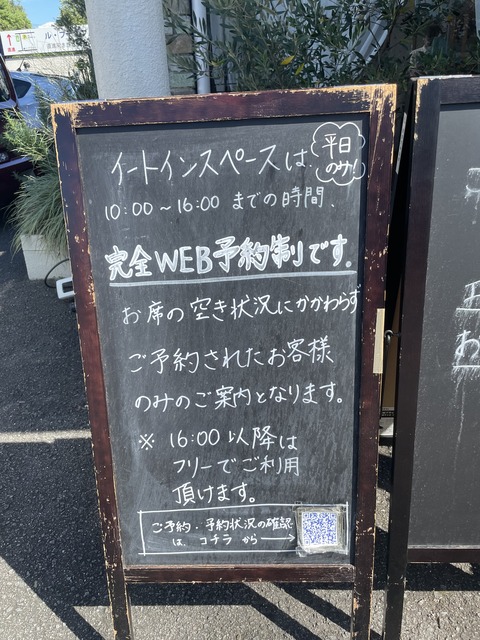 イートインスペースは、
平日
のみ!
10:00～16:00 までの時間、
完全WEB予約制です。
お席の空き状況にかかわらず
ご予約されたお客様
のみのご案内となります。
※ 16:00 以降は
フリーでご利用
頂けます。
ご予約・予約状況の確認
は、コチラから→